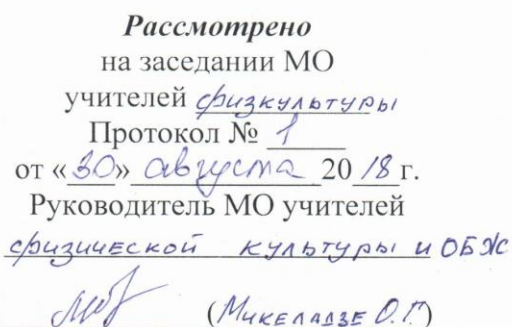 Рассмотрено
на заседании МО
учителей физкультуры
Протокол № 1
от «30» августа 2018 г.
Руководитель МО учителей
физической культуры и ОБЖ
(Микеладзе О.Г)